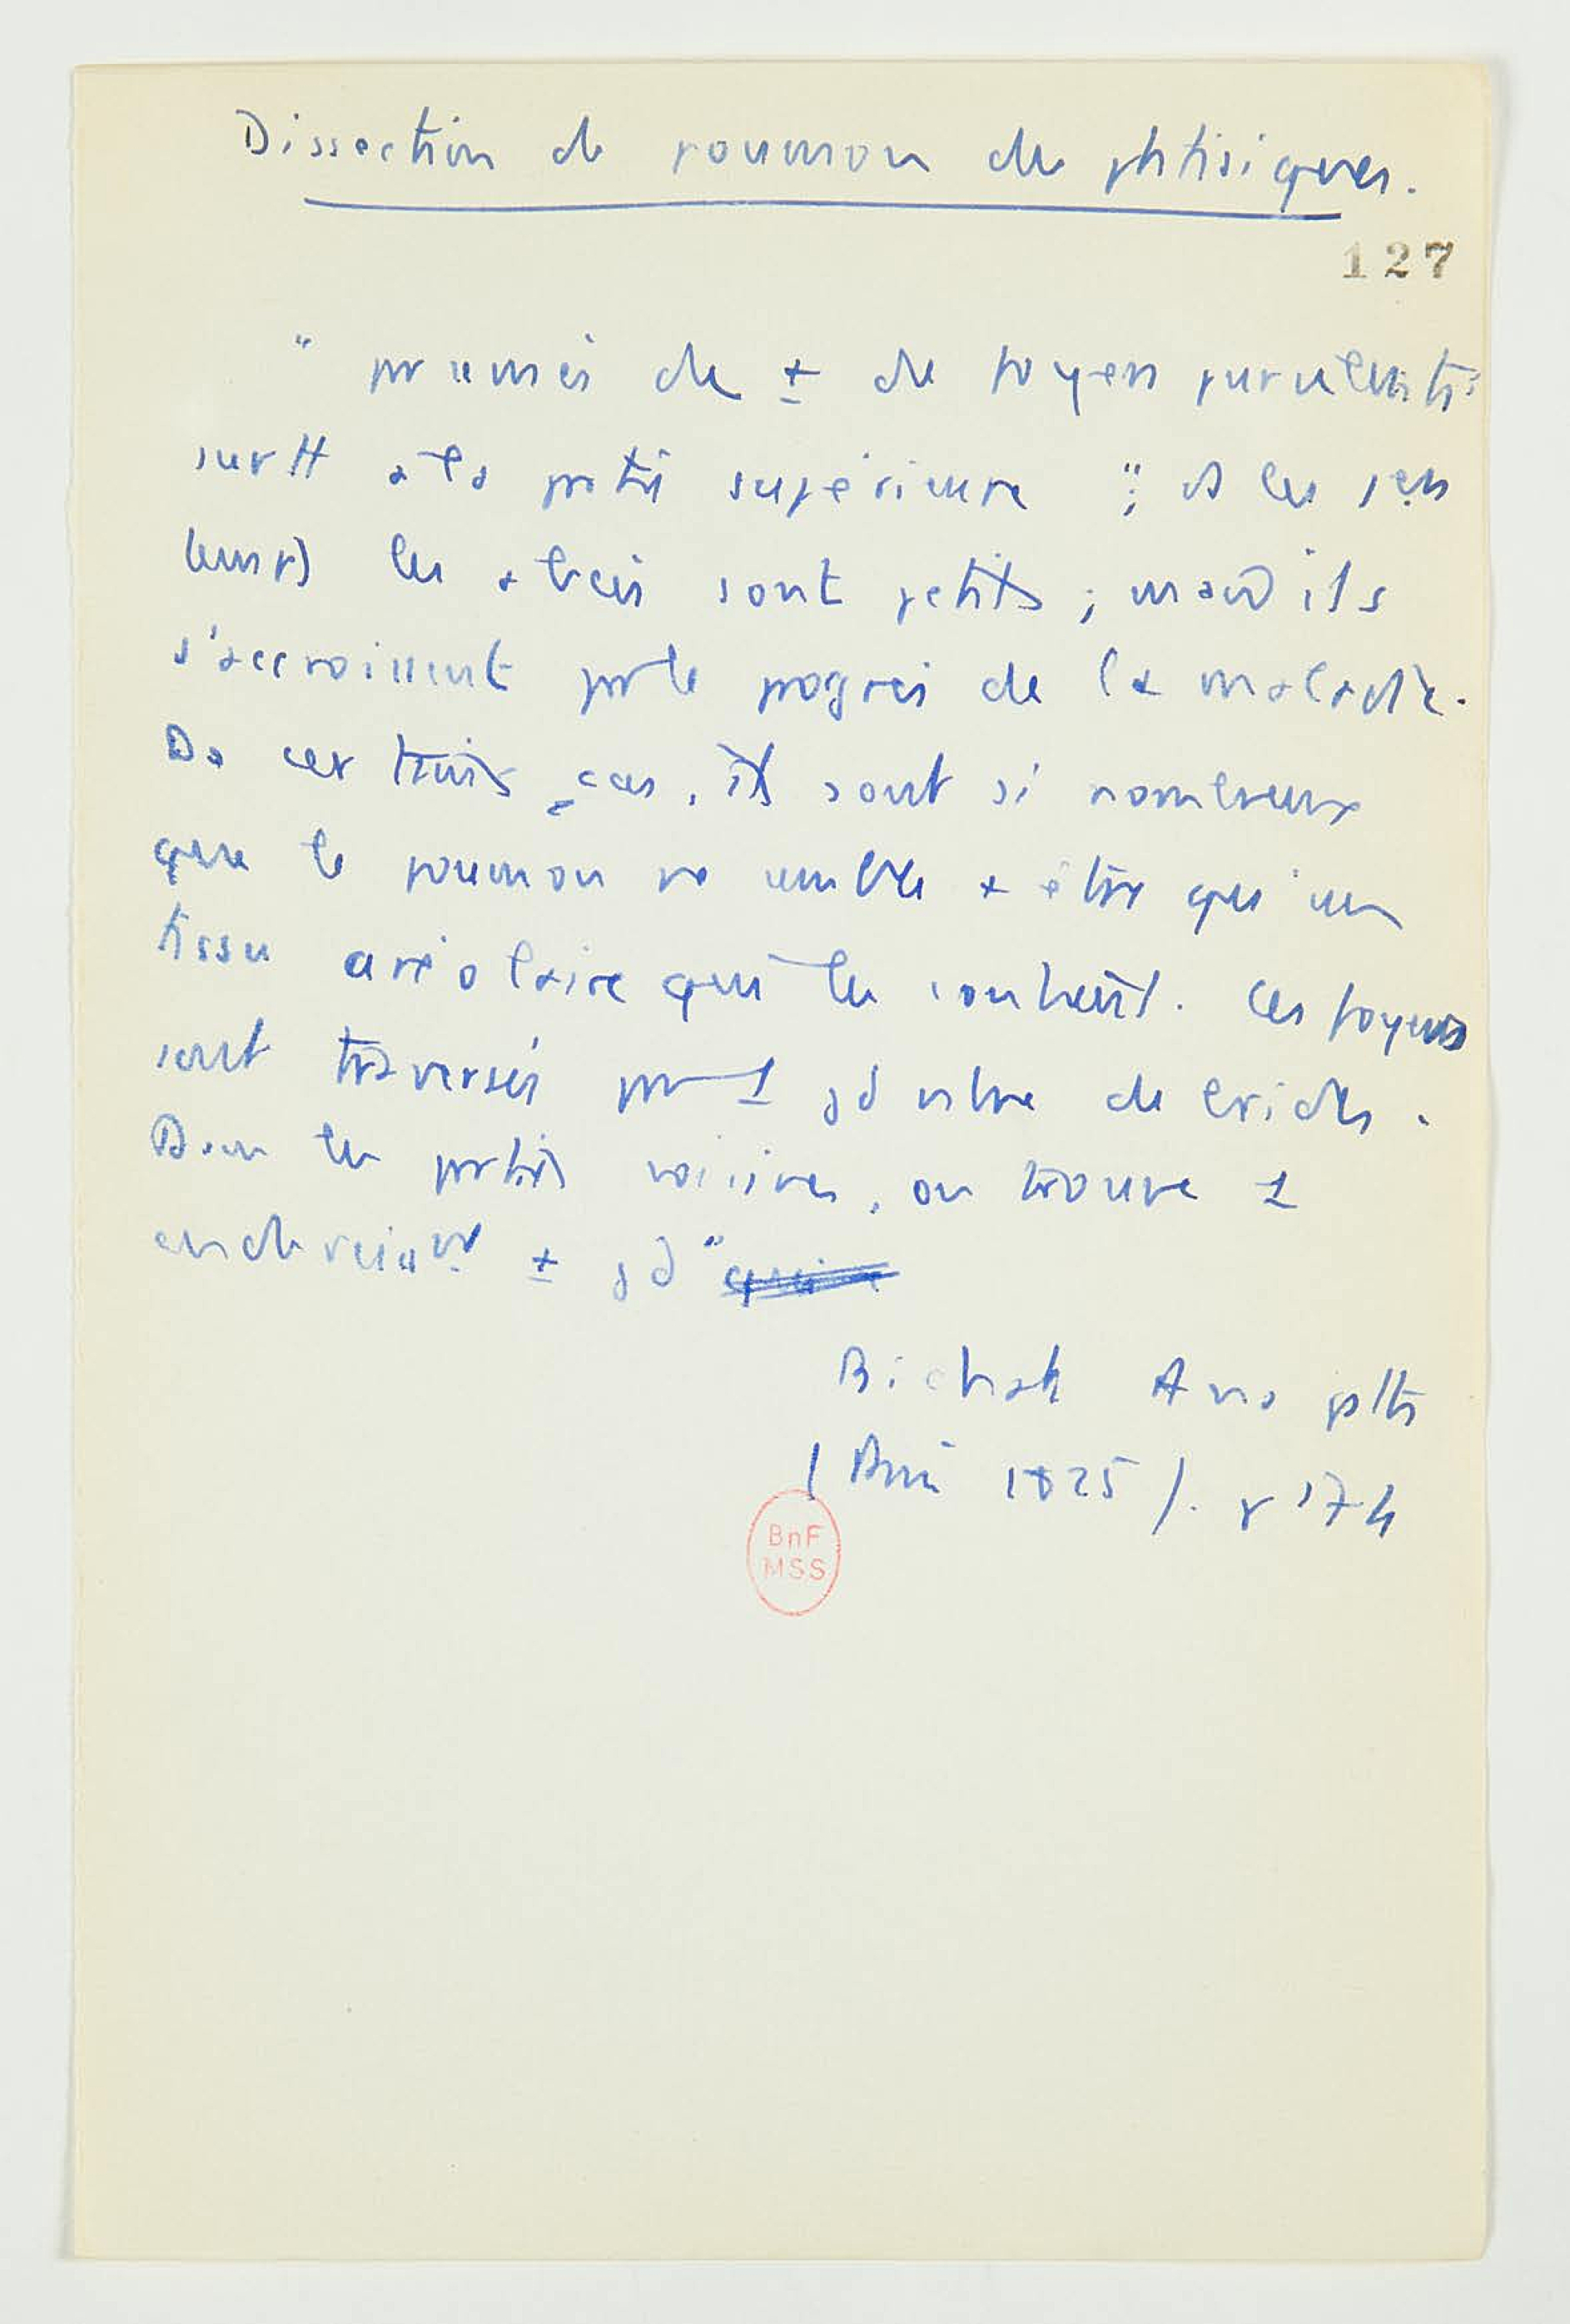 Dissection de poumon de phtisiques.
127
" de ± de foyers purulents
surtt a la partie supérieure " ; ds les
les abcès sont petits ; mais ils
s'accroissent par le progrès de la maladie.
Ds certains cas, ils sont si nombreux
que le poumon ne semble a être qu'un
tissu aréolaire qui les contient. Ces foyers
sont traversés par 1 gd nbre de brides.
Dans les parties voisines, on trouve 1
± gd "
Bichat Ana path
(Paris 1825). p 174
BnF
MSS